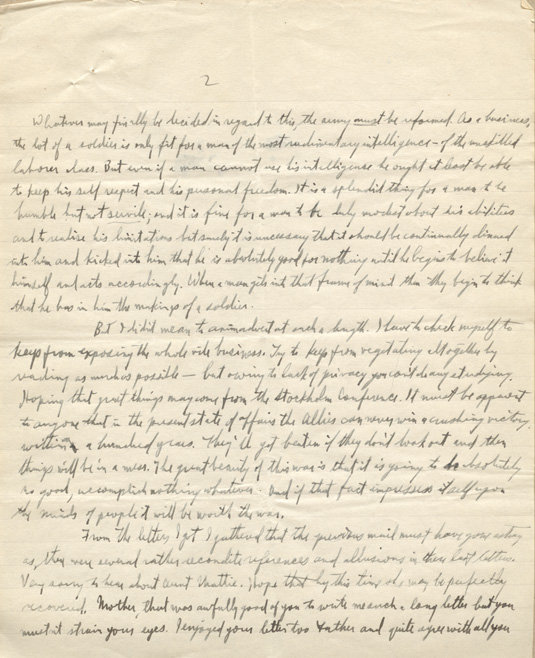 2
Whatever may finally be decided in regard to this, the army must be reformed. As a business,
the lot of a soldier is only fit for a man of the most rudimentary intelligence - of the unskilled
laborer class. But even if a man cannot use his intelligence he ought at least be able
to keep his self respect and his personal freedom. It is a splendid thing for a man to be
humble but not servile; and it is fine for a man to be duly modest about his abilities
and to realise his limitations but surely it is unnecessary that it should be continually dinned
into him and kicked into him that he is absolutely good for nothing until he begins to believe it
himself and acts accordingly. When a man gets into that frame of mind then they begin to think
that he has in him the makings of a soldier.
But I didn't mean to animadvert at such a length. I have to check myself to
keep from exposing the whole vile business. Try to keep from vegetating altogether by
reading as much as possible — but owing to lack of privacy you can't do any studying.
Hoping that great things may come from the Stockholm Conference. It must be apparent
to anyone that in the present state of affairs the Allies can never win a crushing victory
within a hundred years. They'll get beaten if they don't look out and then
things will be in a mess. The great beauty of this war is that it is going to do absolutely
no good, accomplish nothing whatever. And if that fact impresses itself upon
the minds of people it will be worth the war.
From the letters I got I gathered that the previous mail must have gone astray
as there were several rather recondite references and allusions in these last letters.
Very sorry to hear about Aunt Mattie. Hope that by this time she may be perfectly
recovered. Mother, that was awfully good of you to write me such a long letter but you
must it strain your eyes. I enjoyed your letter too Father and quite agree with all you